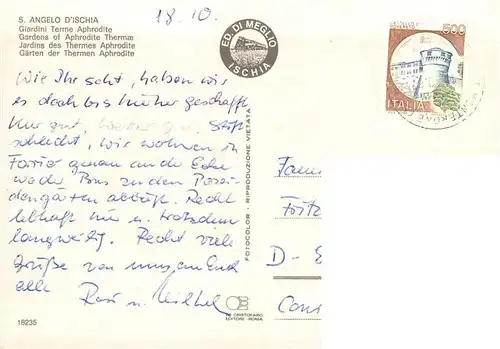 S. ANGELO D'ISCHIA
Giardini Terme Aphrodite
Gardens of Aphrodite Thermæ
Jardins des Thermes Aphrodite
Gärten der Thermen Aphrodite
18.10.
ED. DI MEGLIO
ISCHIA
500
ITALIA
Wie Ihr seht, haben wir
es doch bis hierher geschafft
Kur gut,
schlecht, wir wohnen in
Forio genau an der Ecke
wo der Bus zu den Posei-
dongärten abbiegt. Recht
lebhaft hier u. trotzdem
langweilig. Recht viele
Grüße von uns an Euch
alle
Rosi u.
FOTOCOLOR - RIPRODUZIONE VIETATA
Fritz
D-
DE CRISTOFARO
EDITORE - ROMA
18235